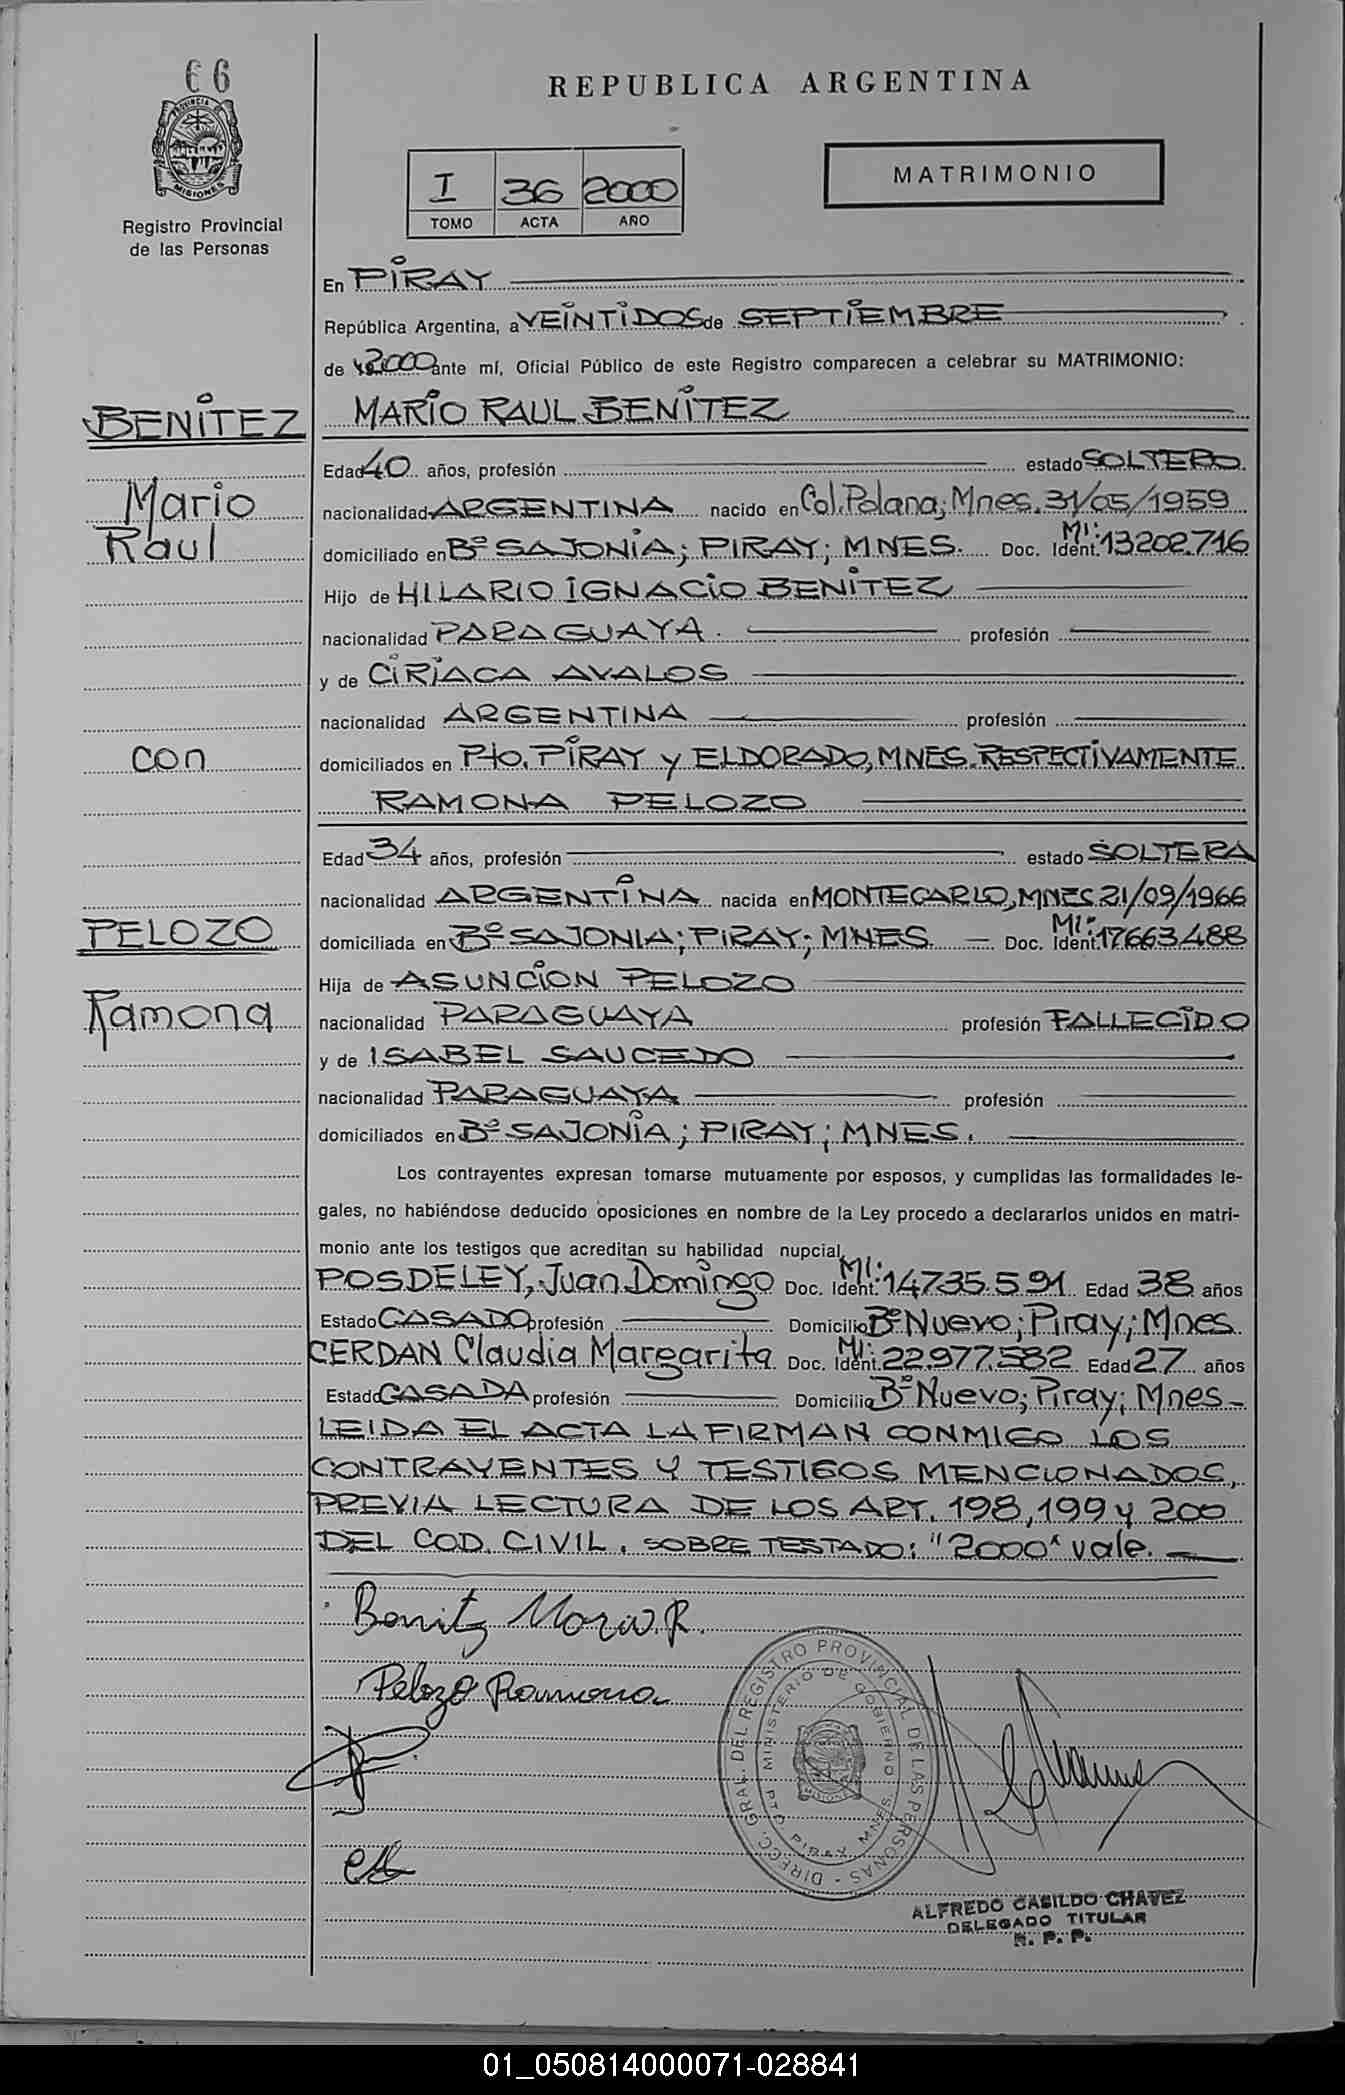 66
PROVINCIA
MISIONES
Registro Provincial
de las Personas
REPUBLICA ARGENTINA
I 36 2000
TOMO ACTA AÑO
MATRIMONIO
En PIRAY
República Argentina, a VEINTIDOS de SEPTIEMBRE
de 2000 ante mí, Oficial Público de este Registro comparecen a celebrar su MATRIMONIO:
BENITEZ
Mario
Raul
con
PELOZO
Ramona
MARIO RAUL BENITEZ
Edad 40 años, profesión estado SOLTERO.
nacionalidad ARGENTINA nacido en Col. Polana; Mnes. 31/05/1959
domiciliado en Bº SAJONIA; PIRAY; MNES. Doc. Ident. MI: 13202.716
Hijo de HILARIO IGNACIO BENITEZ
nacionalidad PARAGUAYA. profesión
y de CIRIACA AVALOS
nacionalidad ARGENTINA profesión
domiciliados en Pto. PIRAY y ELDORADO, MNES. RESPECTIVAMENTE
RAMONA PELOZO
Edad 34 años, profesión estado SOLTERA
nacionalidad ARGENTINA nacida en MONTECARLO, MNES 21/09/1966
domiciliada en Bº SAJONIA; PIRAY; MNES. — Doc. Ident. MI: 17663.488
Hija de ASUNCION PELOZO
nacionalidad PARAGUAYA profesión FALLECIDO
y de ISABEL SAUCEDO
nacionalidad PARAGUAYA profesión
domiciliados en Bº SAJONIA; PIRAY; MNES.
Los contrayentes expresan tomarse mutuamente por esposos, y cumplidas las formalidades le-
gales, no habiéndose deducido oposiciones en nombre de la Ley procedo a declararlos unidos en matri-
monio ante los testigos que acreditan su habilidad nupcial,
POSDELEY, Juan Domingo Doc. Ident. MI: 14735.591 Edad 38 años
Estado CASADO profesión Domicilio Bº Nuevo; Piray; Mnes.
CERDAN Claudia Margarita Doc. Ident. MI: 22.977.582 Edad 27 años
Estado CASADA profesión Domicilio Bº Nuevo; Piray; Mnes-
LEIDA EL ACTA LA FIRMAN CONMIGO LOS
CONTRAYENTES Y TESTIGOS MENCIONADOS,
PREVIA LECTURA DE LOS ART. 198, 199 y 200
DEL COD. CIVIL. SOBRE TESTADO: "2000" vale.
Benitz Mario. R.
Pelozo Ramona
DIRECC. GRAL. DEL REGISTRO PROVINCIAL DE LAS PERSONAS -
MINISTERIO DE GOBIERNO
PTO PIRAY MNES.
MISIONES
ALFREDO CASILDO CHAVEZ
DELEGADO TITULAR
R. P. P.
01_050814000071-028841